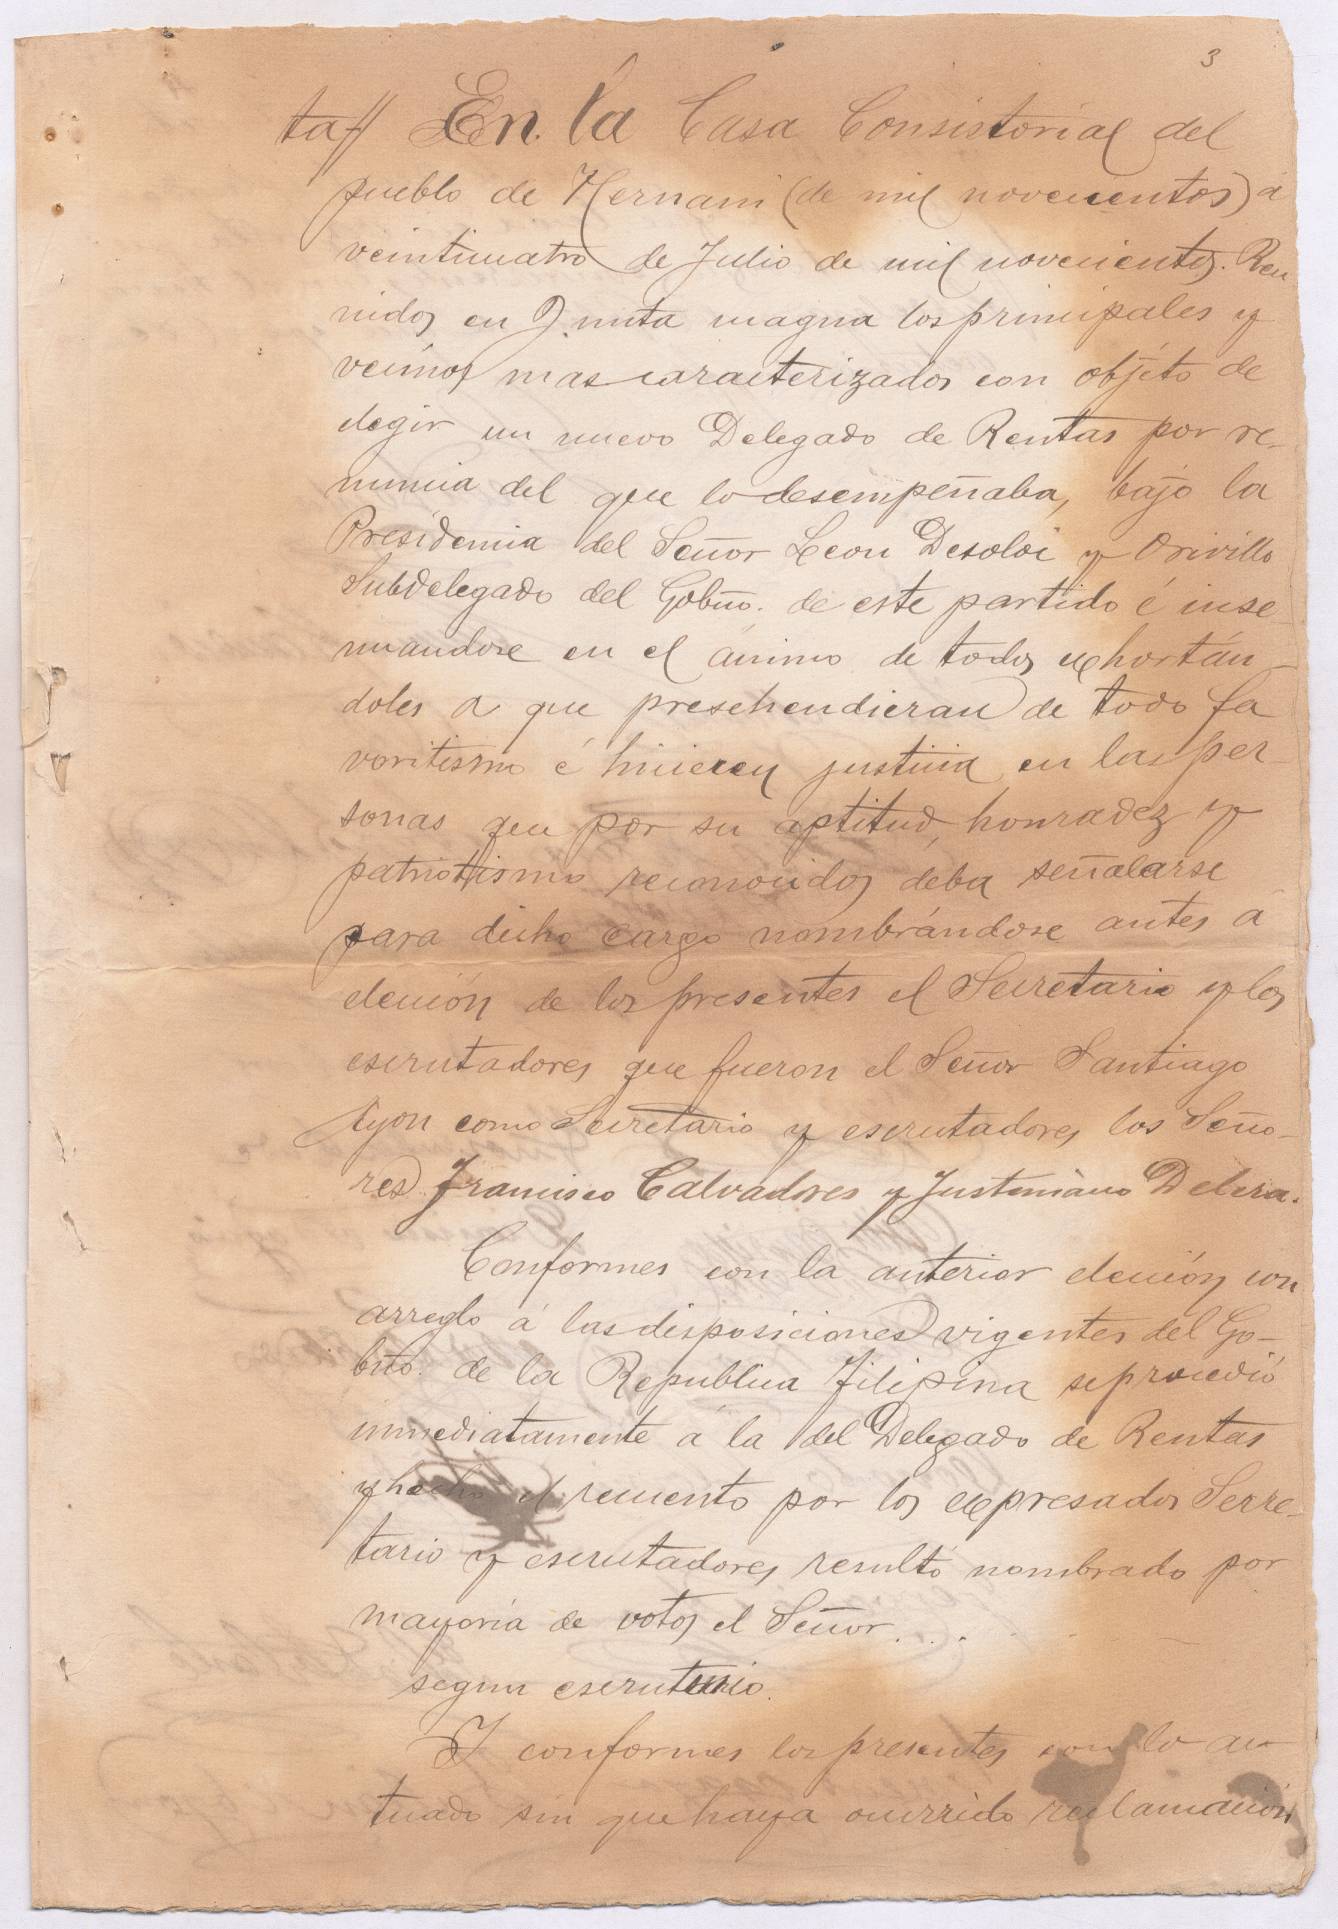 3
ta// En. la Casa Consistorial del
pueblo de Hernani (de mil novecientos) á
veinticuatro de Julio de mil novecientos. Reu
nidos en Junta magna los principales y
vecinos mas caracterizados con objeto de
elegir un nuevo Delegado de Rentas por re-
nuncia del que lo desempeñaba, bajo la
Presidencia del Señor Leon Desoloi y Orivillo
Subdelegado del Gobno. de este partido é inse
nuandose en el ánimo de todos exhortán-
doles a que preschendieran de todo fa
voritismo é hicieren justicia en las per-
sonas que por su aptitud, honradez y
patriotismo reconocidos deba señalarse
para dicho cargo nombrándose antes á
elección de los presentes el Secretario y los
escrutadores que fueron el Señor Santiago
Ayon como Secretario y escrutadores los Seño-
res Francisco Calvadores y Justiniano Delira.
Conformes con la anterior elección con
arreglo á las disposiciones vigentes del Go-
bno. de la Republica Filipina se procedió
inmediatamente á la del Delegado de Rentas
y hecho el recuento por los expresados Secre-
tario y escrutadores resultó nombrado por
mayoria de votos el Señor . . .
segun escrutinio.
Y conformes los presentes con lo ac
tuado sin que haya ocurrido reclamación